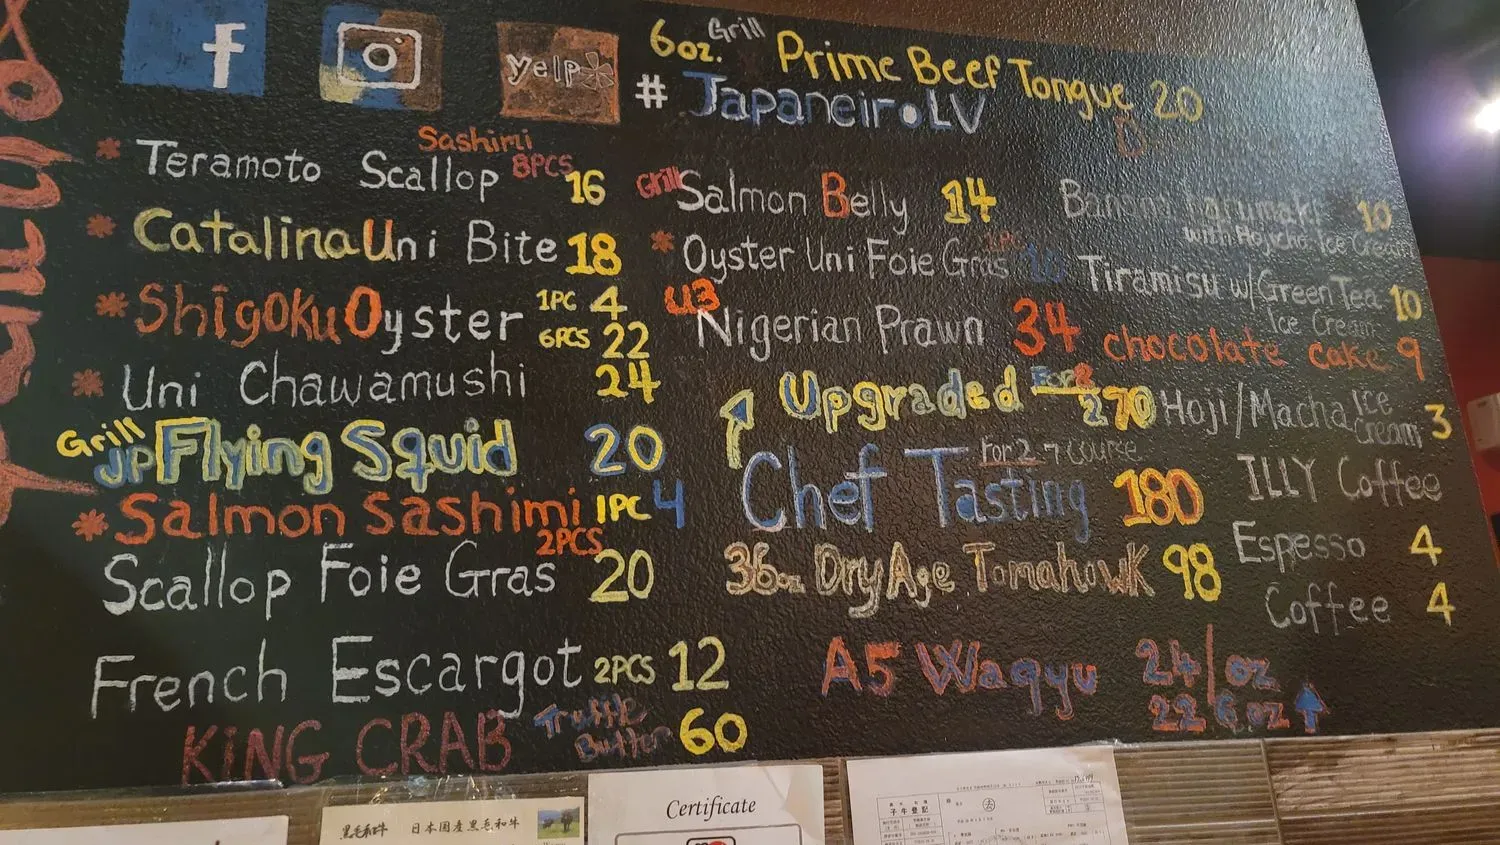 f
yelp
6oz. Grill Prime Beef Tongue 20
# Japaneiro LV
* Teramoto Scallop Sashimi 8PCS 16
* Catalina Uni Bite 18
* Shigoku Oyster 1PC 4
6PCS 22
* Uni Chawamushi 24
Grill JP Flying Squid 20
* Salmon Sashimi 1PC 4
2PCS
Scallop Foie Gras 20
French Escargot 2PCS 12
KING CRAB Truffle Butter 60
Grill Salmon Belly 14
* Oyster Uni Foie Gras 1PC 10
U3 Nigerian Prawn 34
Upgraded For 2 270
Chef Tasting For 2 7 course 180
36oz Dry Age Tomahawk 98
A5 Wagyu 24/oz
22 6oz
Banana Harumaki 10
with Hojicha Ice Cream
Tiramisu w/Green Tea Ice Cream 10
chocolate cake 9
Hoji/Macha Ice Cream 3
ILLY Coffee
Espresso 4
Coffee 4
黒毛和牛 日本国産黒毛和牛
Certificate
子牛登記